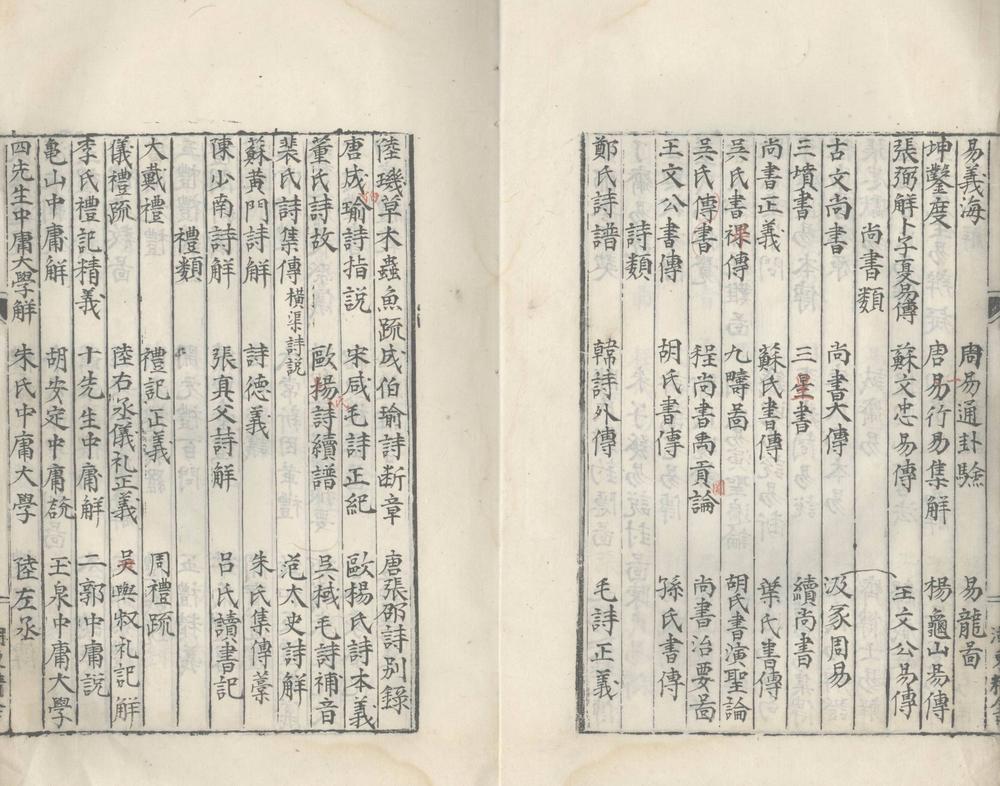 易義海 周易通卦驗 易龍啚
坤鑿度 唐易行易集解 楊龜山易傳
張弼解卜子夏易傳 蘇文忠易傳 王文公易傳
尚書類
古文尚書 尚書大傳 汲冢周易
三墳書 三星書 續尚書
尚書正義 蘇氏書傳 葉氏書傳
吳氏書裸傳 九疇啚 胡氏書演聖論
吳氏傳書 程尚書禹貢論 尚書治要啚
王文公書傳 胡氏書傳 孫氏書傳
詩類
鄭氏詩譜 韓詩外傳 毛詩正義
陸璣草木蟲魚疏 成伯瑜詩斷章 唐張邵詩別錄
唐成瑜詩指説 宋咸毛詩正紀 歐楊氏詩本義
董氏詩故 歐揚詩續譜 吳棫毛詩補音
裴氏詩集傳 橫渠詩説 范太史詩解
蘇黄門詩解 詩德義 朱氏集傳藁
陳少南詩解 張真父詩解 呂氏讀書記
禮類
大戴禮 禮記正義 周禮疏
儀禮疏 陸右丞儀礼正義 吳與叔礼記解
李氏禮記精義 十先生中庸解 二郭中庸説
龜山中庸解 胡安定中庸説 玉泉中庸大學
四先生中庸大學解 朱氏中庸大學 陸左丞